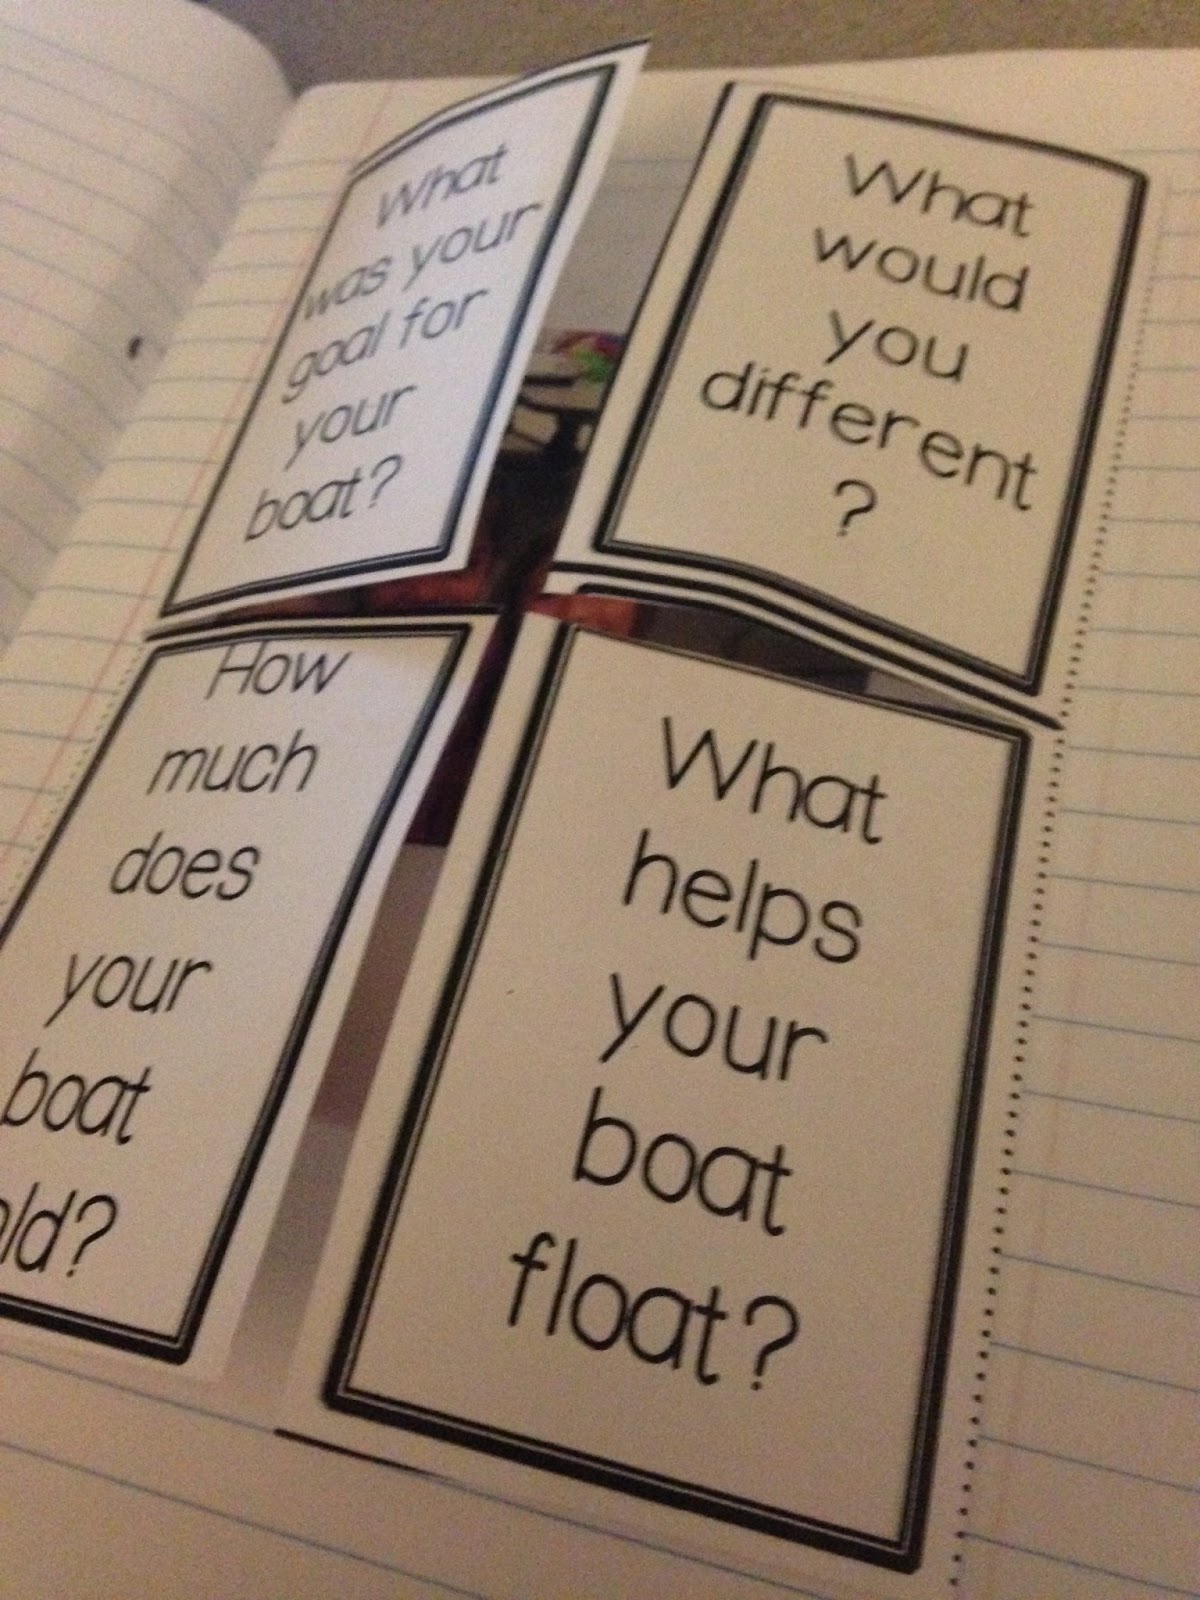 What
was your
goal for
your
boat?
What
would
you
different
?
How
much
does
your
boat
old?
What
helps
your
boat
float?